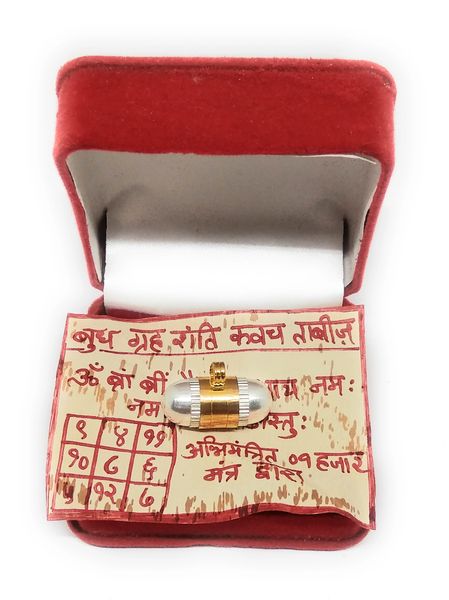 बुध ग्रह शांति कवच ताबीज़
ॐ ब्रां ब्रीं नमः
नम स्तुः
९ ४ ११
१० ८ ६
५ १२ ७
अभिमंत्रित ०१ हजार
मंत्र द्वारा